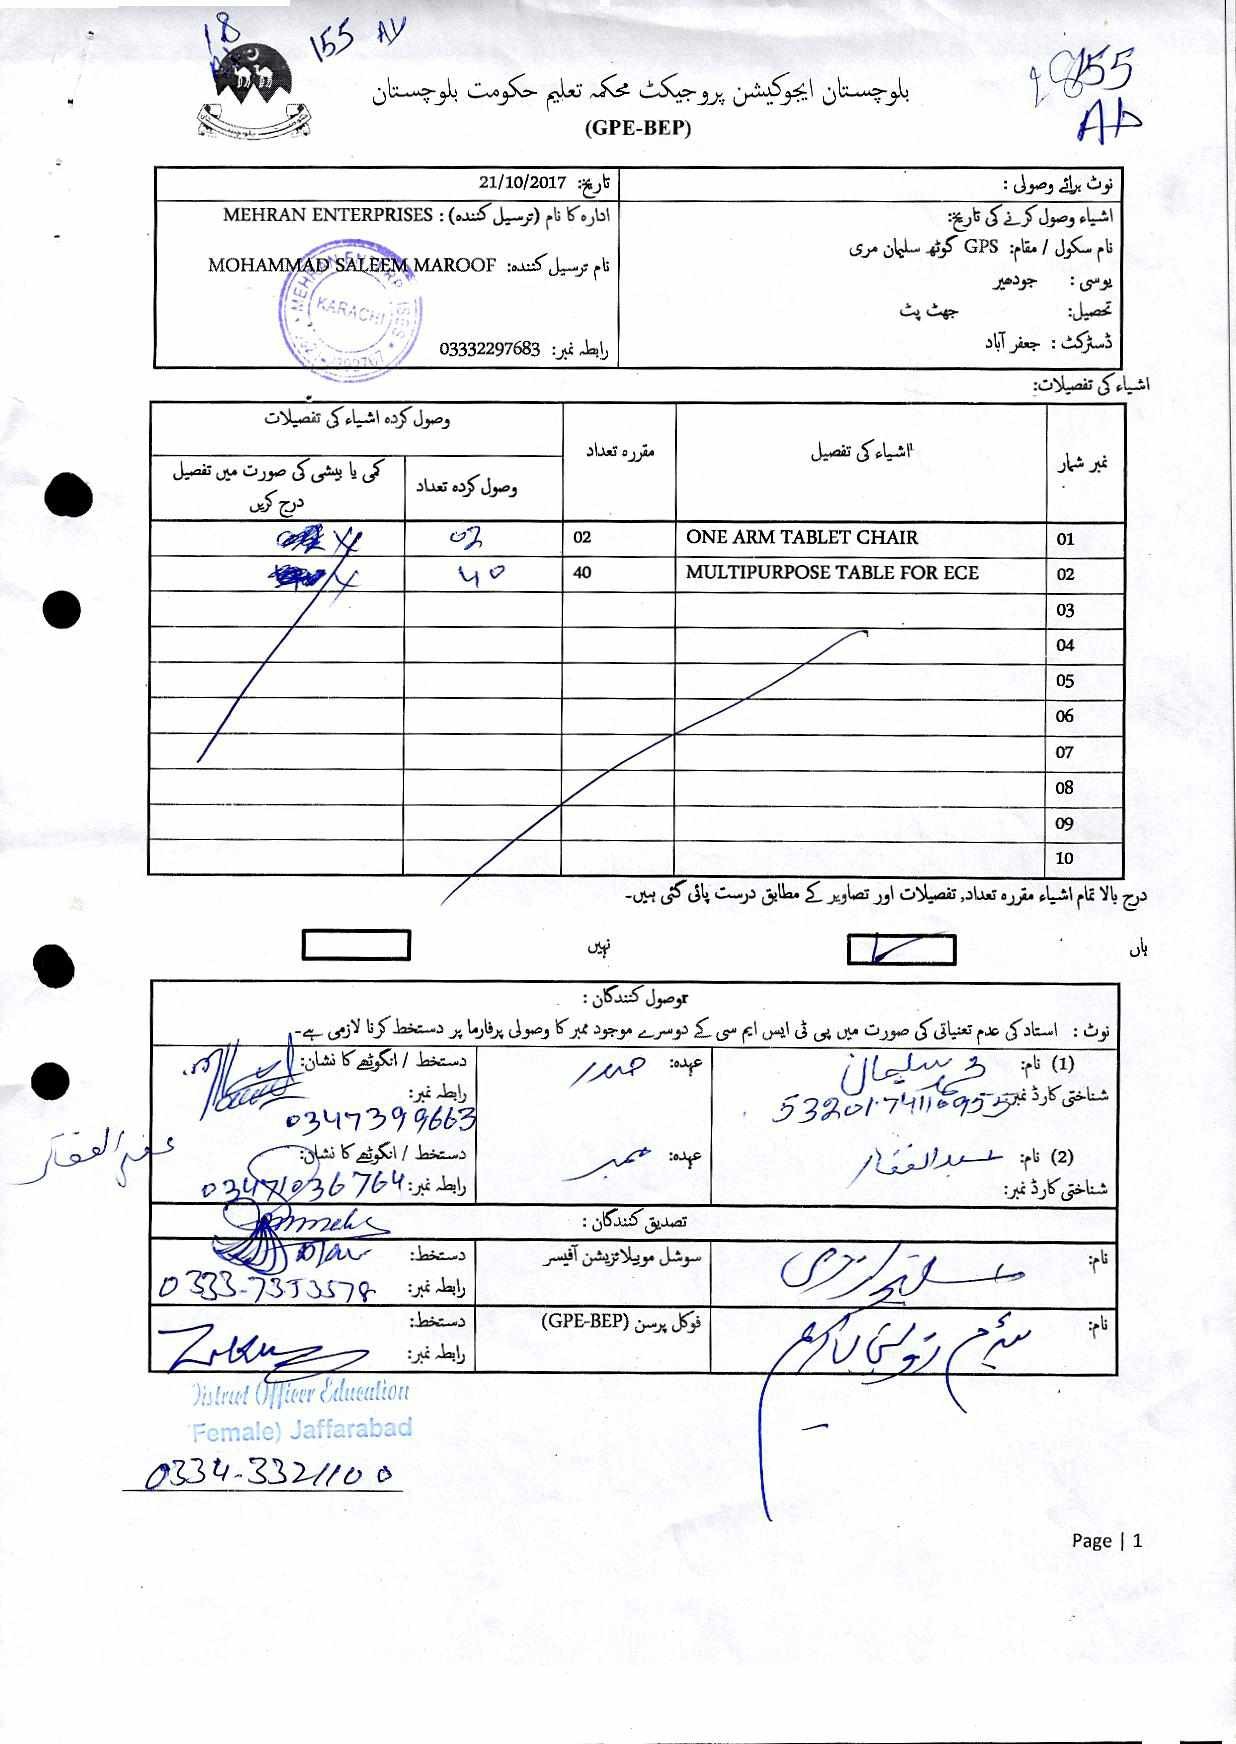 18
155 AD
155
AD
بلوچستان ایجوکیشن پروجیکٹ محکمہ تعلیم حکومت بلوچستان
(GPE-BEP)
نوٹ برائے وصولی :
تاریخ: 21/10/2017
اشیاء وصول کرنے کی تاریخ:
ادارہ کا نام (ترسیل کنندہ) : MEHRAN ENTERPRISES
نام سکول / مقام: GPS گوٹھ سلیمان مری
نام ترسیل کنندہ: MOHAMMAD SALEEM MAROOF
یوسی : جودھیر
تحصیل: جھٹ پٹ
ڈسٹرکٹ : جعفر آباد
رابطہ نمبر: 03332297683
MEHRAN ENTERPRISES
KARACHI
اشیاء کی تفصیلات:
نمبر شمار
اشیاء کی تفصیل
مقررہ تعداد
وصول کردہ اشیاء کی تفصیلات
وصول کردہ تعداد
کمی یا بیشی کی صورت میں تفصیل درج کریں
01 ONE ARM TABLET CHAIR 02 02
02 MULTIPURPOSE TABLE FOR ECE 40 40
03
04
05
06
07
08
09
10
درج بالا تمام اشیاء مقررہ تعداد, تفصیلات اور تصاویر کے مطابق درست پائی گئی ہیں۔
ہاں
نہیں
وصول کنندگان :
نوٹ : استاد کی عدم تعنیاتی کی صورت میں پی ٹی ایس ایم سی کے دوسرے موجود ممبر کا وصولی پرفارما پر دستخط کرنا لازمی ہے۔
(1) نام: سلیمان
عہدہ: صدر
دستخط / انگوٹھے کا نشان:
شناختی کارڈ نمبر:
رابطہ نمبر:
03473999663
(2) نام: عبدالغفار
عہدہ: ممبر
دستخط / انگوٹھے کا نشان:
شناختی کارڈ نمبر:
رابطہ نمبر: 03471036764
عبدالغفار
تصدیق کنندگان :
نام:
سوشل موبیلائزیشن آفیسر
دستخط:
رابطہ نمبر: 0333-7353578
نام:
فوکل پرسن (GPE-BEP)
دستخط:
رابطہ نمبر:
District Officer Education
(Female) Jaffarabad
0334-3321100
Page | 1